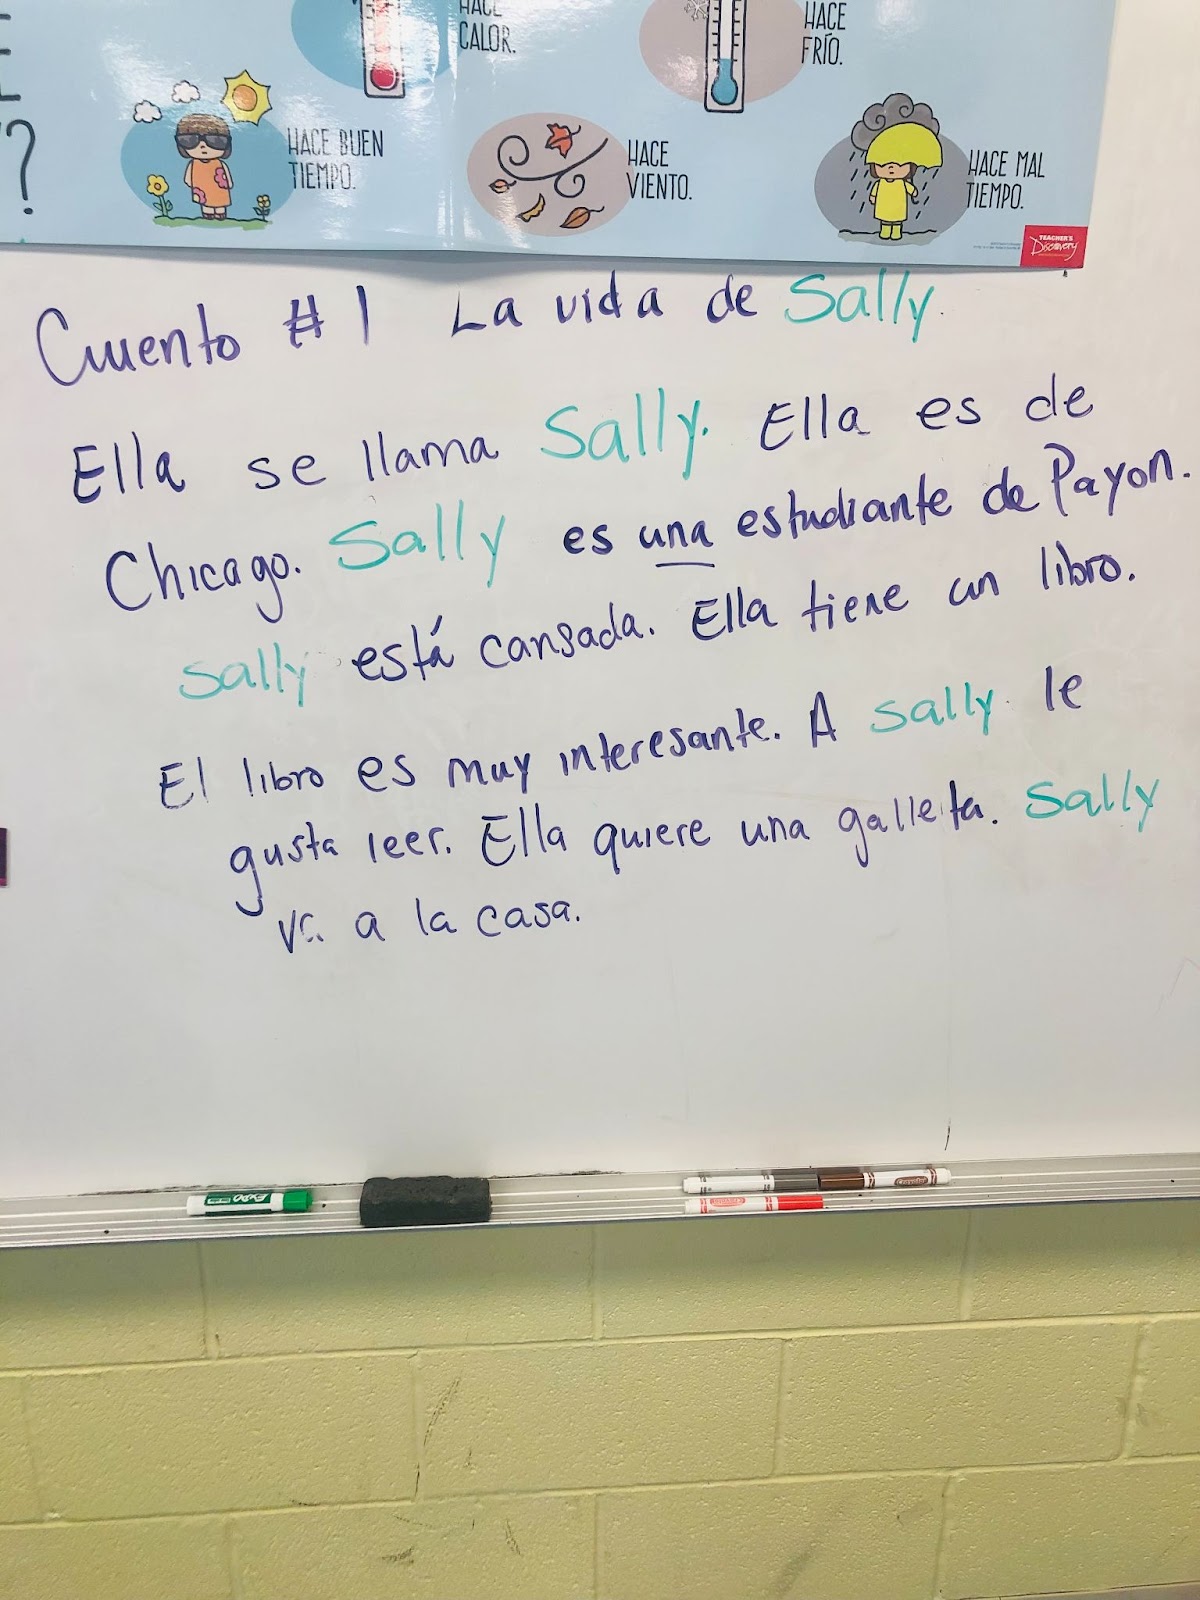 HACE
CALOR.
HACE
FRÍO.
?
HACE BUEN
TIEMPO.
HACE
VIENTO.
HACE MAL
TIEMPO.
TEACHER'S
Discovery
Cuento #1 La vida de Sally.
Ella se llama Sally. Ella es de
Chicago. Sally es una estudiante de Payon.
Sally está cansada. Ella tiene un libro.
El libro es muy interesante. A Sally le
gusta leer. Ella quiere una galleta. Sally
va a la casa.
EXPO
Crayola